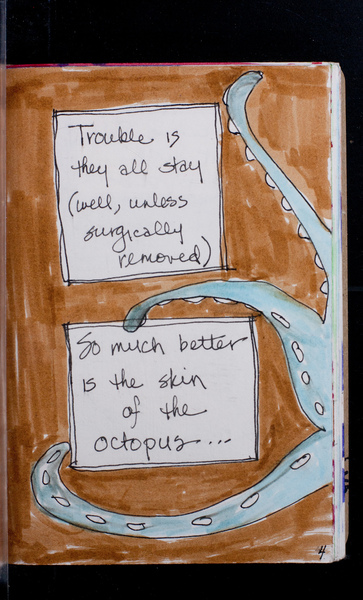 Trouble is
they all stay
(well, unless
surgically
removed)
So much better
is the skin
of the
octopus...
4